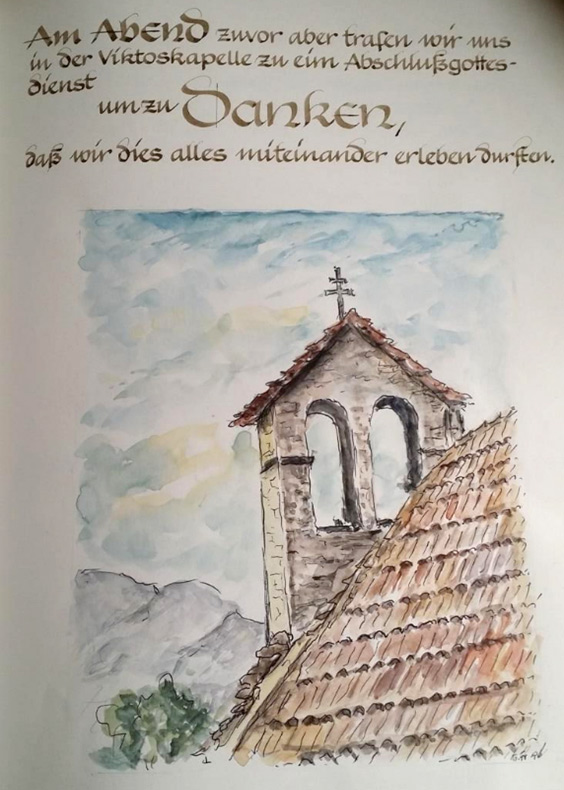 Am Abend zuvor aber trafen wir uns
in der Viktoskapelle zu eim Abschlußgottes-
dienst
um zu Danken,
daß wir dies alles miteinander erleben durften.